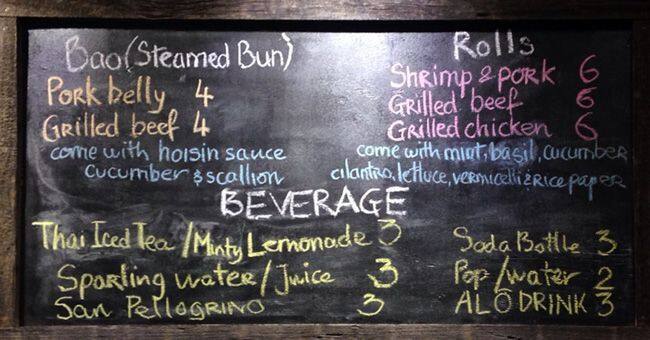 Bao (Steamed Bun)
Pork belly 4
Grilled beef 4
come with hoisin sauce
cucumber & scallion
Rolls
Shrimp & pork 6
Grilled beef 6
Grilled chicken 6
come with mint, basil, cucumber
cilantro, lettuce, vermicelli & rice paper
BEVERAGE
Thai Iced Tea / Minty Lemonade 3
Sparling water / Juice 3
San Pellogrino 3
Soda Bottle 3
Pop / water 2
ALÔ DRINK 3